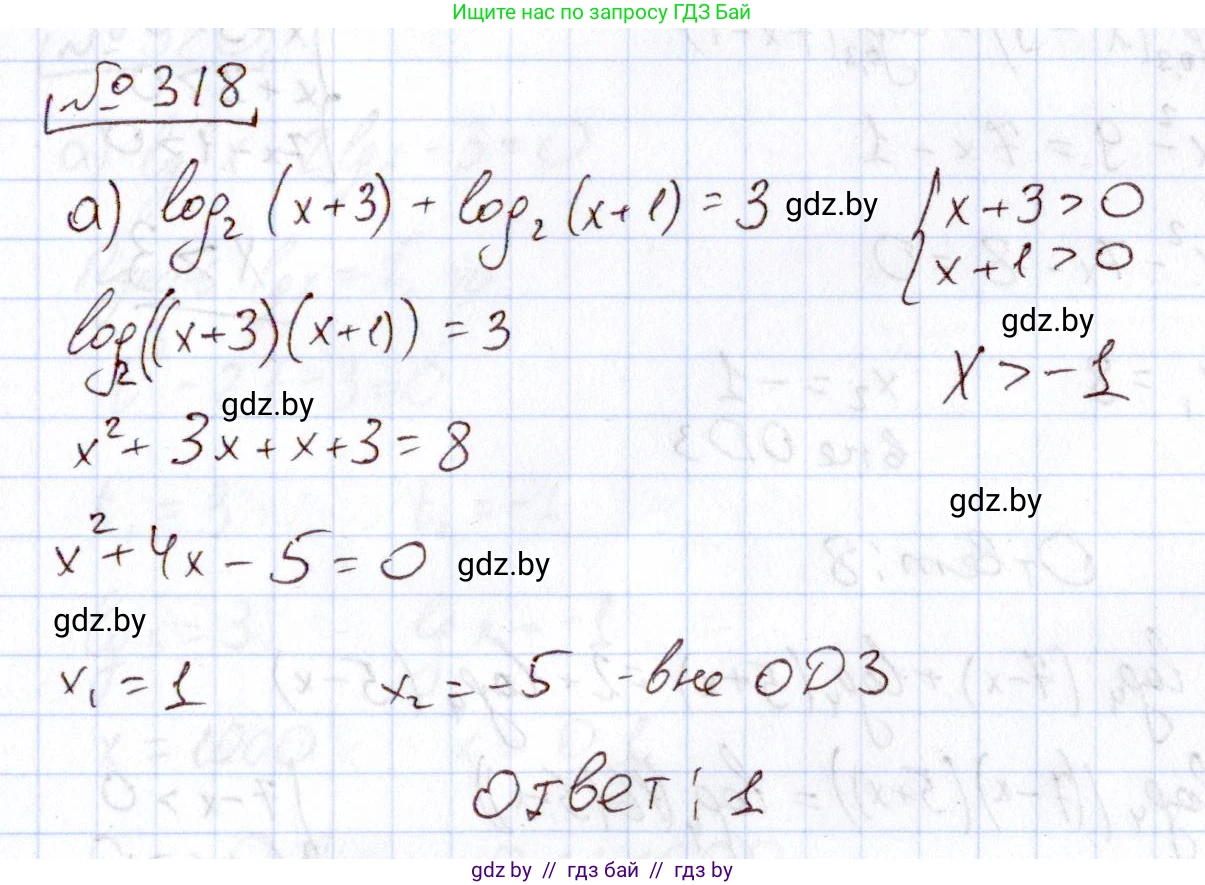 Ищите нас по запросу ГДЗ Бай
№ 318
а) log₂ (x+3) + log₂ (x+1) = 3 gdz.by { x+3>0
x+1>0
log₂((x+3)(x+1)) = 3 gdz.by
x > -1
gdz.by
x² + 3x + x + 3 = 8
gdz.by
x² + 4x - 5 = 0 gdz.by
gdz.by
x₁ = 1 x₂ = -5 - вне ОДЗ
Ответ: 1
gdz.by // гдз бай // гдз by